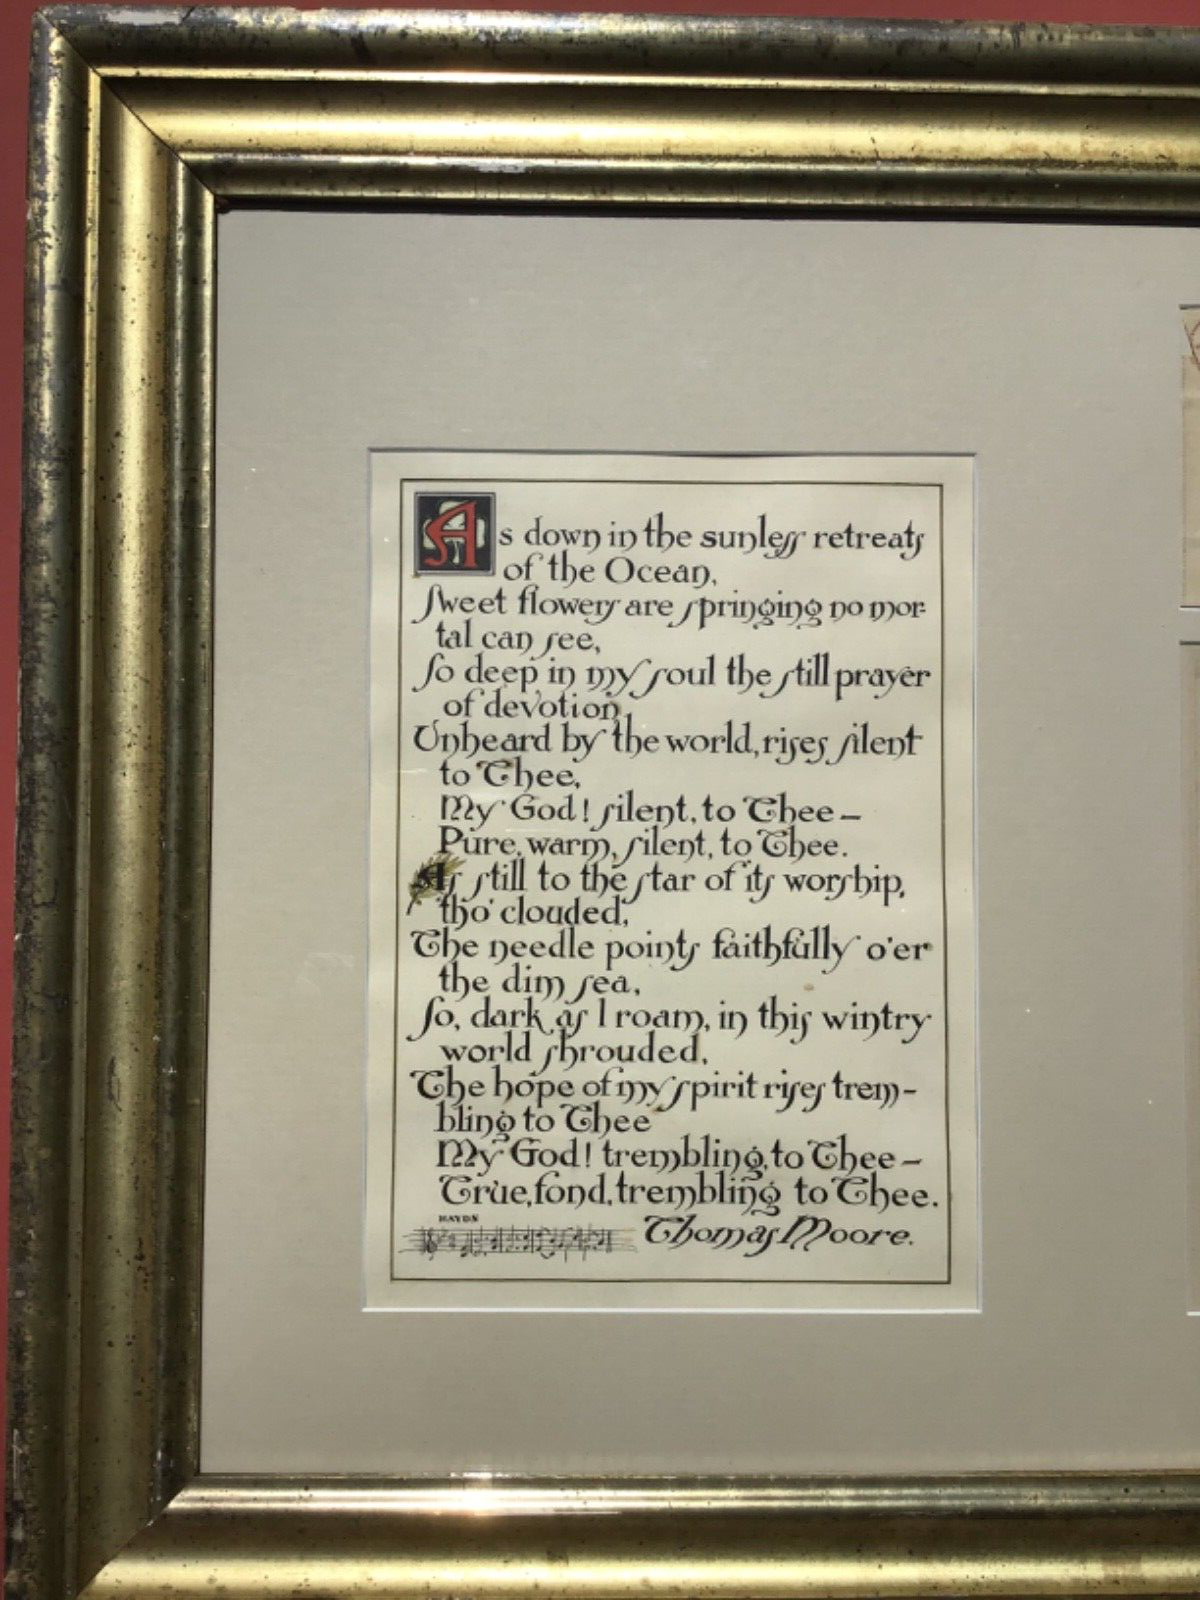 As down in the sunless retreats
of the Ocean,
Sweet flowers are springing no mor-
tal can see,
So deep in my soul the still prayer
of devotion,
Unheard by the world, rises silent
to Thee,
My God! silent, to Thee—
Pure, warm, silent, to Thee.
As still to the star of its worship,
tho' clouded,
The needle points faithfully o'er
the dim sea,
So, dark as I roam, in this wintry
world shrouded,
The hope of my spirit rises trem-
bling to Thee
My God! trembling, to Thee—
True, fond, trembling to Thee.
HAYDN
Thomas Moore.